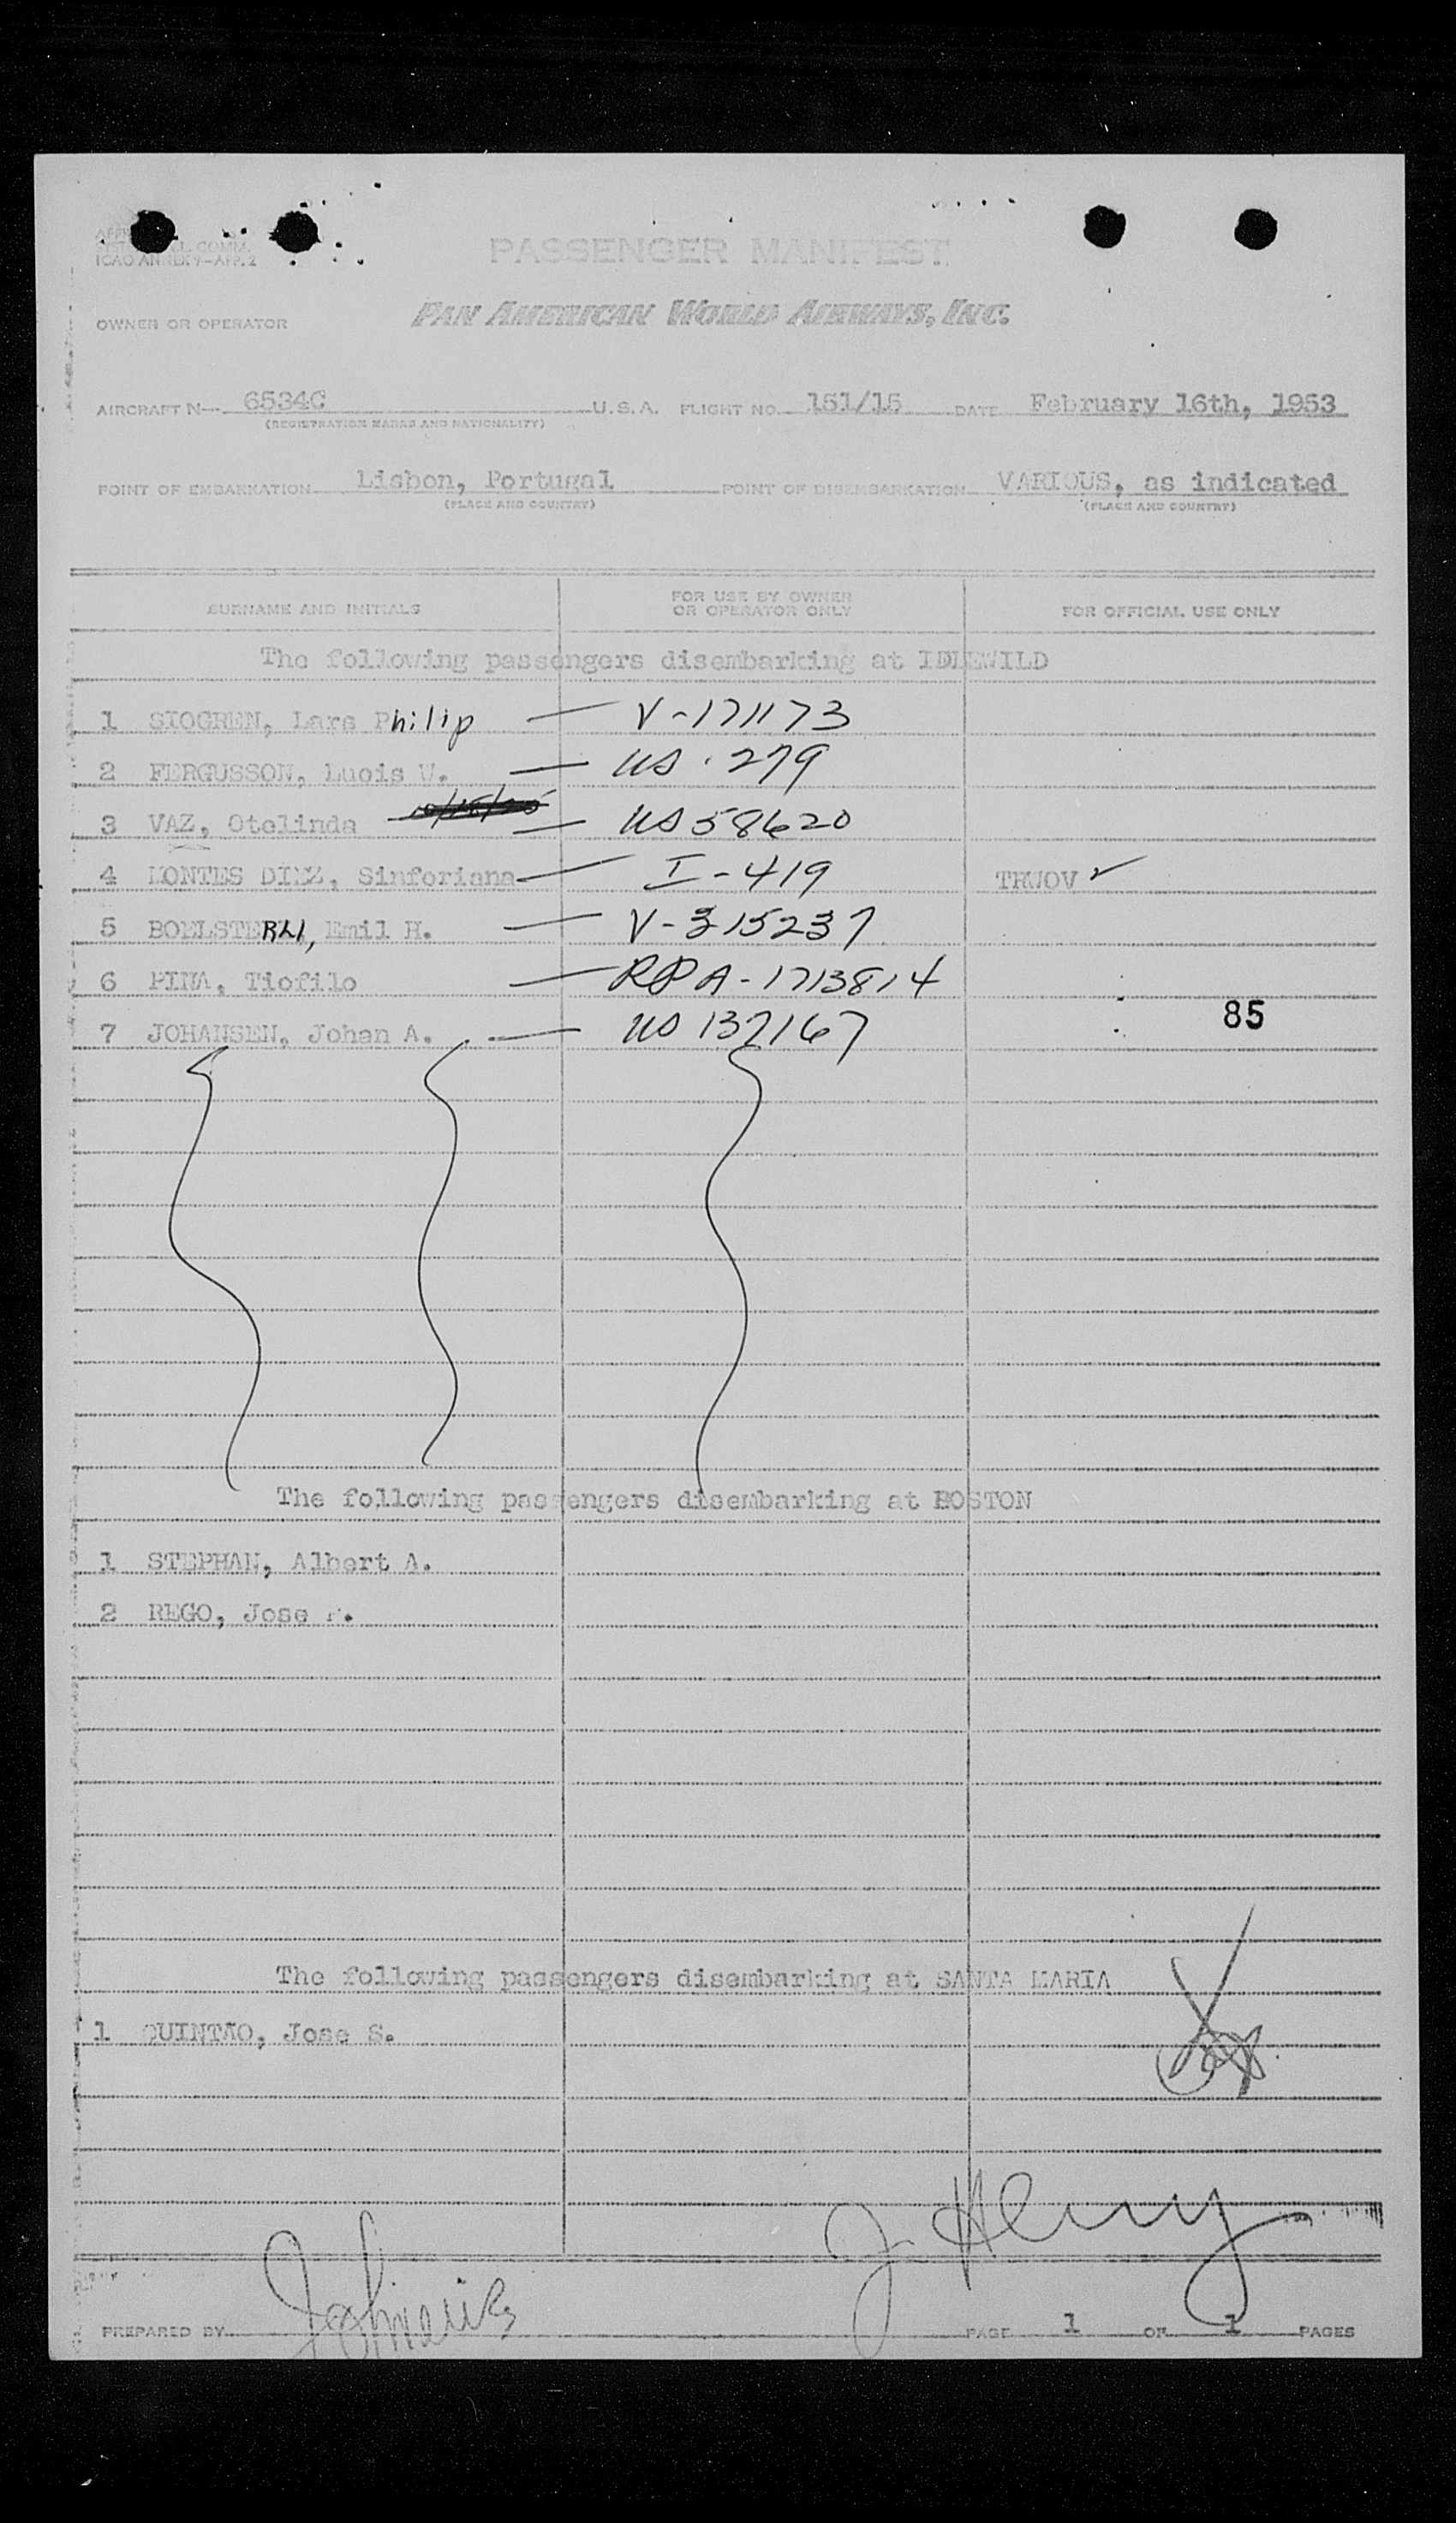 ICAO ANNEX 9-APP. 2
PASSENGER MANIFEST
OWNER OR OPERATOR PAN AMERICAN WORLD AIRWAYS, INC.
AIRCRAFT N- 6534C U.S.A. FLIGHT NO. 151/15 DATE February 16th, 1953
(REGISTRATION MARKS AND NATIONALITY)
POINT OF EMBARKATION Lisbon, Portugal POINT OF DISEMBARKATION VARIOUS, as indicated
(PLACE AND COUNTRY) (PLACE AND COUNTRY)
SURNAME AND INITIALS FOR USE BY OWNER OR OPERATOR ONLY FOR OFFICIAL USE ONLY
The following passengers disembarking at IDLEWILD
1 SIOGREN, Lars Philip — V-171173
2 FERGUSSON, Luois W. — US. 279
3 VAZ, Otelinda — US 58620
4 MONTES DIEZ, Sinforiana — I-419 TRWOV ✓
5 BOELSTERLI, Emil H. — V-315237
6 PINA, Tiofilo — RPA-1713814
7 JOHANSEN, Johan A. — US 137167 85
The following passengers disembarking at BOSTON
1 STEPHAN, Albert A.
2 REGO, Jose F.
The following passengers disembarking at SANTA MARIA
1 QUINTAO, Jose S.
J. Henry
PREPARED BY PAGE 1 OF 1 PAGES